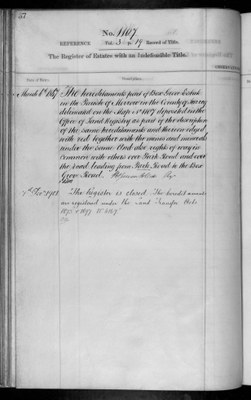 57
No. 1167
REFERENCE Vol. 3 fo 19 Record of Title.
The Register of Estates with an Indefeasible Title.
Date of Entry.
March 8th 1867 The hereditaments part of Box Grove Estate
in the Parish of Merrow in the County of Surrey
delineated on the Map No 1167 deposited in the
Office of Land Registry as part of the description
of the same hereditaments and thereon edged
with red together with the mines and minerals
under the same And also rights of way in
common with others over Park Road and over
the road leading from Park Road to the Box
Grove Road.
The Register is closed The heredit aments
are registered under the Land Transfer Acts
1875 & 1897